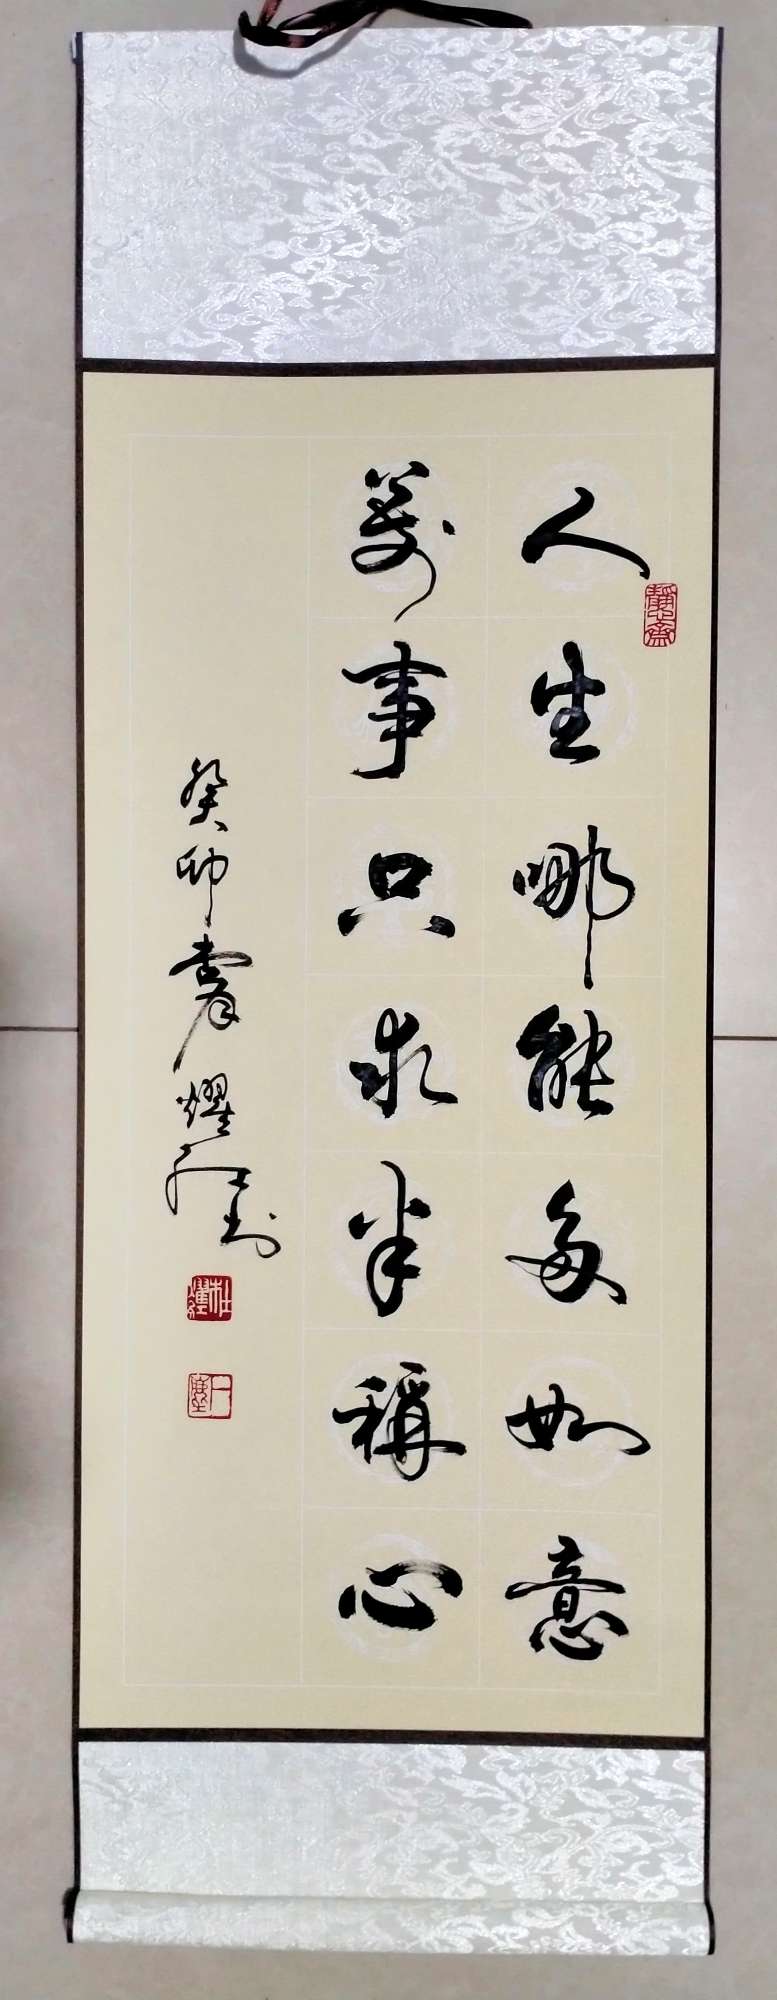 人生哪能多如意
萬事只求半稱心
癸卯春耀红书
靜齋